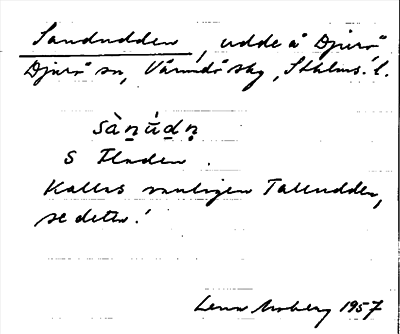 Sandudden, udde å Djurö
Djurö sn, Värmdö skg, Sthlms l.
sànúdn
S Fladen.
Kallas vanligen Talludden,
se detta!
Lena Moberg 1957